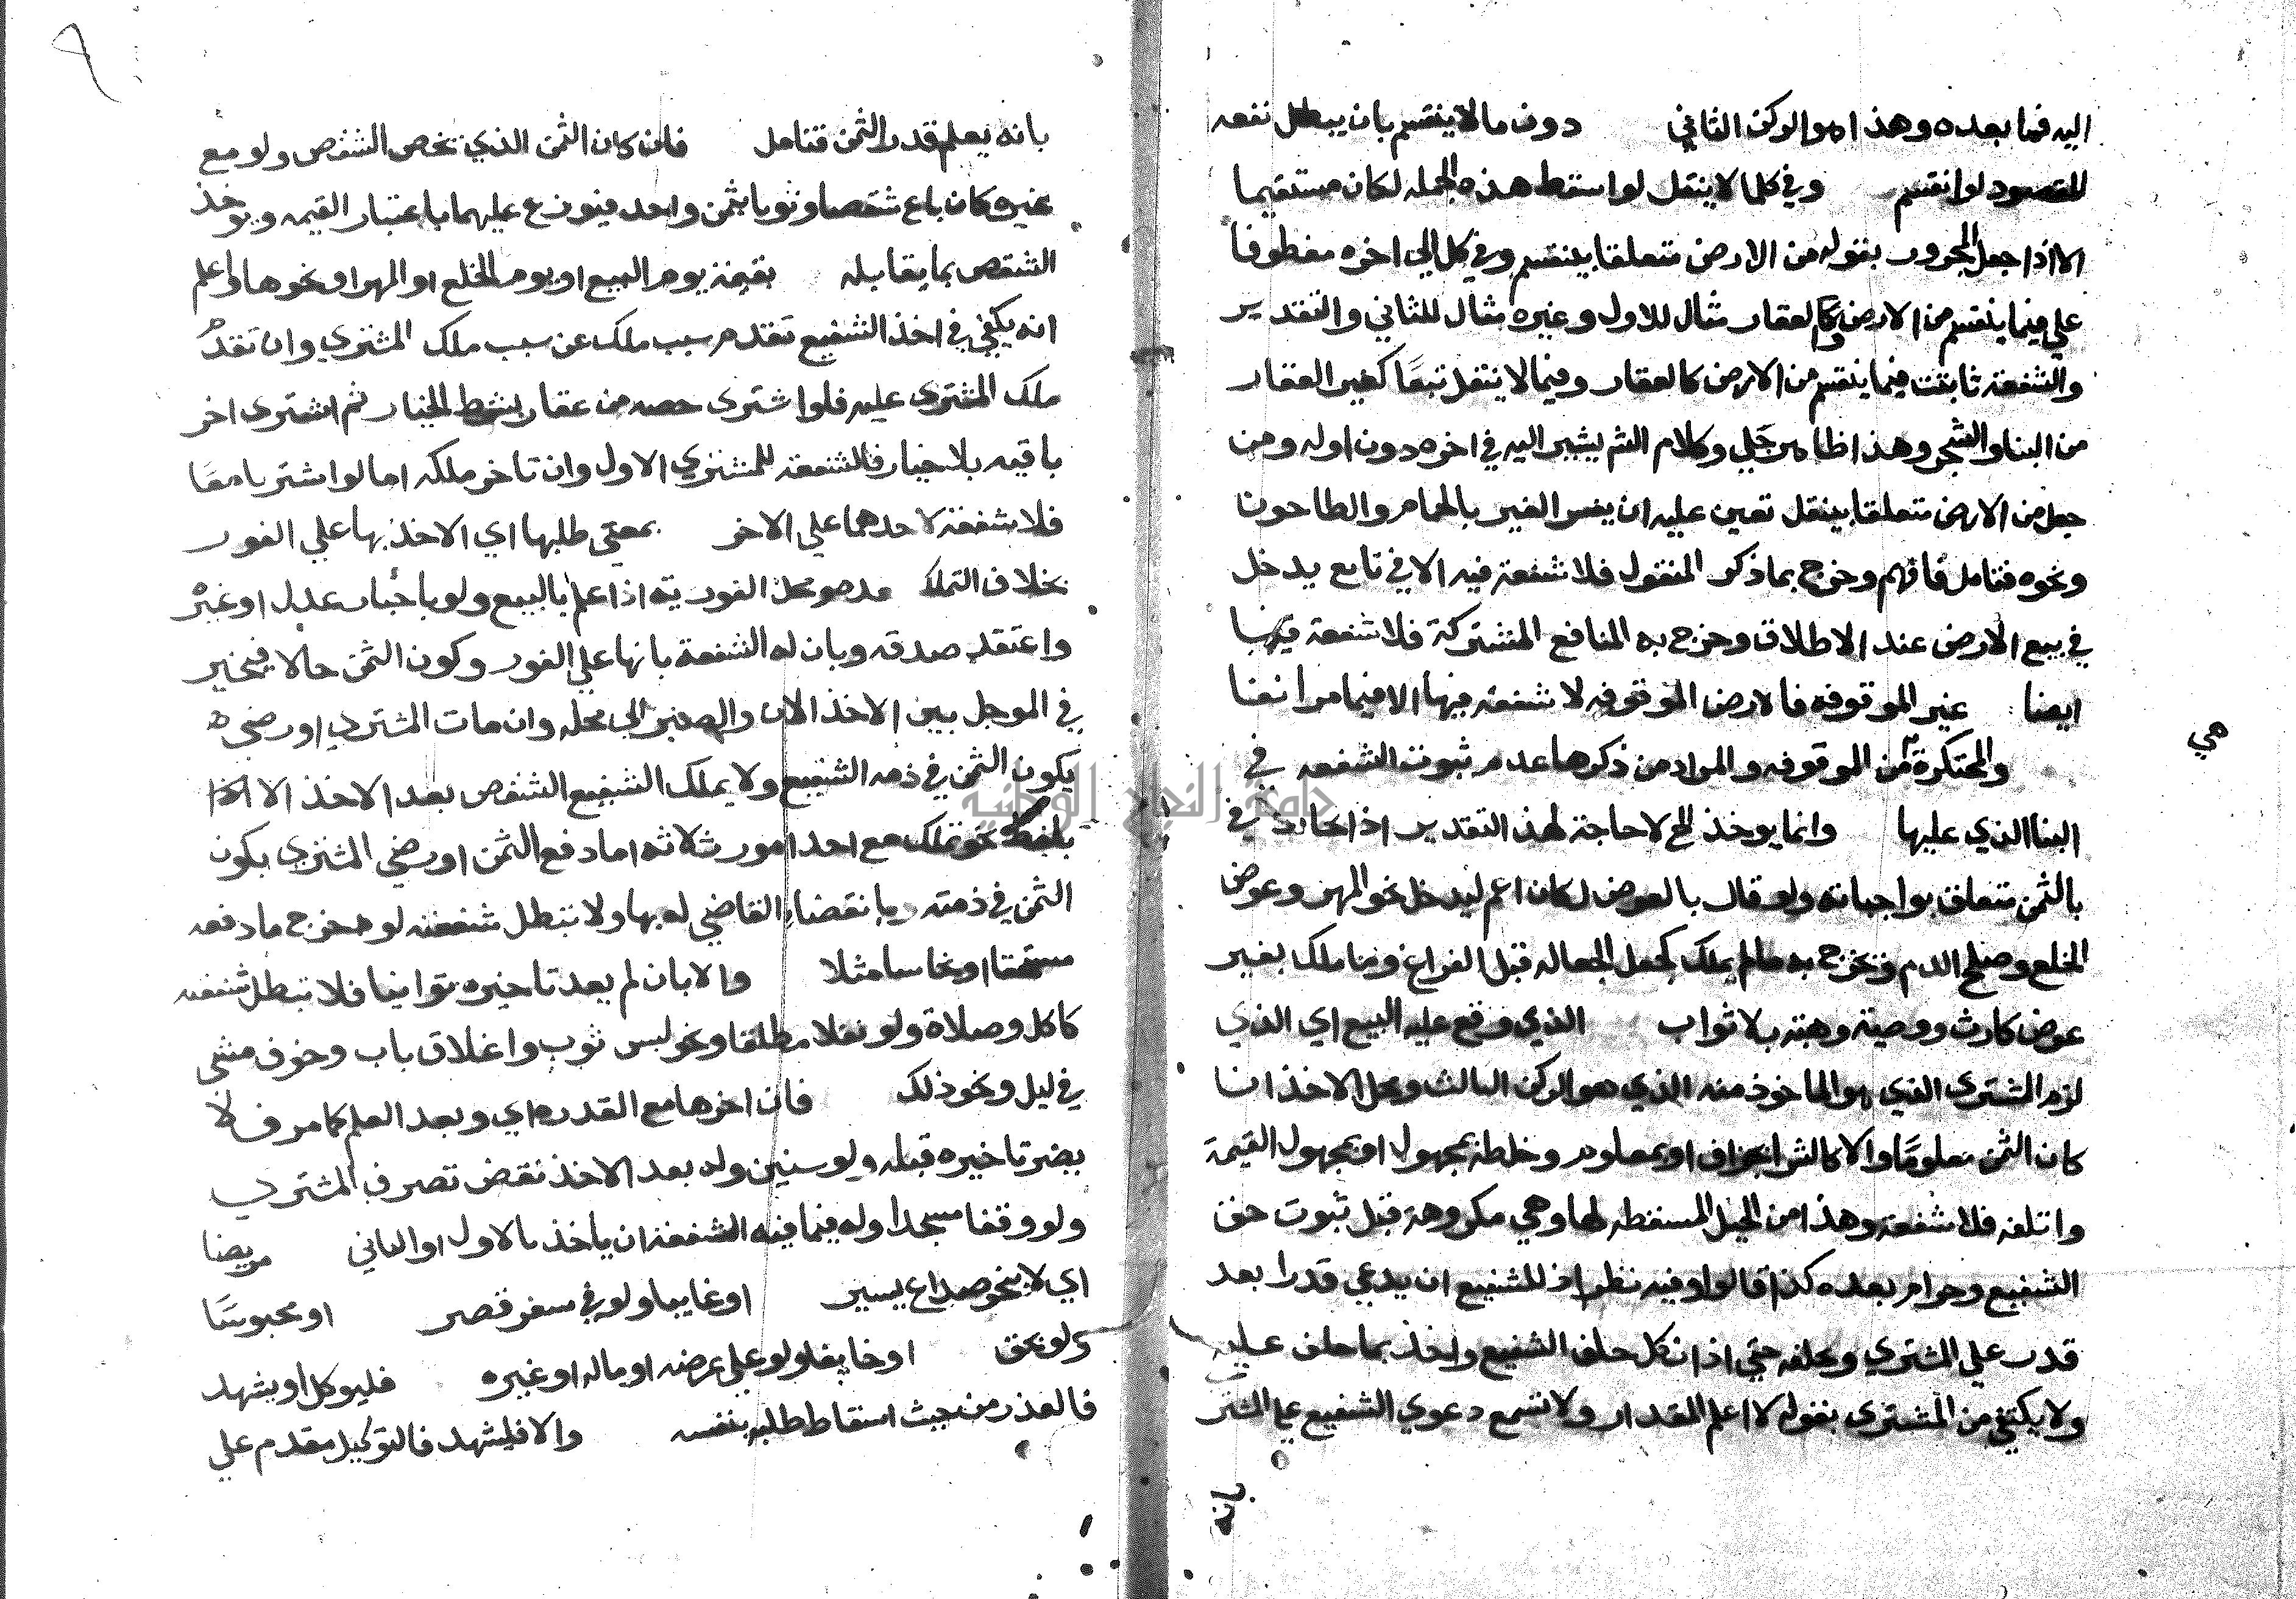 اليه فيما بعده وهذا هو الركن الثاني دون ما لا ينقسم بان يبطل نفعه
المقصود لو انقسم وفي كل ما لا ينقل لو اسقط هذه الجمله لكان مستقيما
الا اذا جعل المجرور بقوله من الارض متعلقا بينقسم وفي كل الي اخره معطوفا
علي فيما ينقسم من الارض وكالعقار مثال للاول وغيره مثال للثاني والتقدير
والشفعة ثابتت فيما ينقسم من الارض كالعقار وفيما لا ينتقل تبعًا كغير العقار
من البناو الشجر وهذا ظاهر جلي وكلام الشم يشير اليه في اخره دون اوله ومن
جعل من الارض متعلقا بينقل تعين عليه ان يفسر الغير بالحمام والطاحون
ونحوه فتامل فافهم وخرج بما ذكر المنقول فلا شفعة فيه الا في تابع يدخل
في بيع الارض عند الاطلاق وخرج به المنافع المشتركة فلا شفعة فيها
ايضا غير الموقوفه فالارض الموقوفه لا شفعة فيها الا فيما مر انفا
هي
والمحتكرة من الموقوفه والمراد من ذكرها عدم ثبوت الشفعه في
البنا الذي عليها وانما يوخذ الخ لا حاجة لهذا التقدير اذ الجار في
بالثمن متعلق بواجباته ولو قال بالعوض لكان اعم ليدخل نحو المهر وعوض
الخلع وصلح الدم وخرج به ما لم يملك كجعل الجعاله قبل الفراغ وما ملك بغير
عوض كارث ووصية وهبته بلا ثواب الذي وقع عليه البيع اي الذي
لزم المشتري الذي هو الماخوذ منه الذي هو الركن الثالث ومحل الاخذ اذا
كان الثمن معلومًا والا كالشرا بجزاف او بمعلوم وخلطه بمجهول او بمجهول القيمة
واتلفه فلا شفعة وهذا من الحيل المسقطه لها وهي مكروهة قبل ثبوت حق
الشفيع وحرام بعده كذا قالوا وفيه نظر اذ للشفيع ان يدعي قدرا بعد
قدر علي المشتري ويحلفه حتي اذا نكل حلف الشفيع واخذ بما حلف عليه
ولا يكتفي من المشتري بقوله لا اعلم المقدار ولا تسمع دعوي الشفيع علي المشتر
بانه
بانه يعلم قدر الثمن فتامل فان كان الثمن الذي نخص الشقص ولو مع
غيره كان باع شقصا وثوبا بثمن واحد فيوزع عليهما باعتبار القيمه ويوخذ
الشقص بما يقابله بقيمة يوم البيع او يوم الخلع او المهر او نحوها واعلم
انه يكفي في اخذ الشفيع تقدم سبب ملك عن سبب ملك المشتري وان تقدم
ملك المشتري عليه فلو اشترى حصه من عقار بشرط الخيار ثم اشترى اخر
باقيه بلا خيار فالشفعة للمشتري الاول وان تاخر ملكه اما لو اشتريا معًا
فلا شفعة لاحدهما علي الاخر بمعني طلبها اي الاخذ بها علي الفور
بخلاف التملك ومحل الفورية اذا علم بالبيع ولو باخبار عدل او غيره
واعتقد صدقه وبان له الشفعة بانها علي الفور وكون الثمن حالا فيخير
في الموجل بين الاخذ الان والصبر الي محله وان مات المشتري او رضي ه
يكون الثمن في ذمه الشفيع ولا يملك الشفيع الشقص بعد الاخذ الا
بلفظ نحو تملك مع احد امور ثلاثه اما دفع الثمن او رضي المشتري بكون
الثمن في ذمته القاضي له بها ولا تبطل شفعته لو خرج ما دفعه
مستحقا او نحاسا مثلا والا بان لم يعد تاخيره توانيا فلا تبطل شفعته
كاكل وصلاة ولو نفلا مطلقا ونحو لبس ثوب واغلاق باب وخوف مشي
في ليل ونحو ذلك فان اخرها مع القدره اي وبعد العلم كما مر فلا
يضر تاخيره قبله ولو سنين وله بعد الاخذ نقض تصرف المشتري
ولو وقفا مسجدا وله فيما فيه الشفعة ان ياخذ بالاول او الثاني مريضا
اي لا بنحو صداع يسير او غايبا ولو في سفر قصر او محبوسًا
ولو بحق او خايفا ولو علي عرضه او ماله او غيره فليوكل او يشهد
فالعذر من حيث اسقاط طلبه بنفسه والا فليشهد فالتوكيل مقدم علي
جامعة النجاح الوطنية